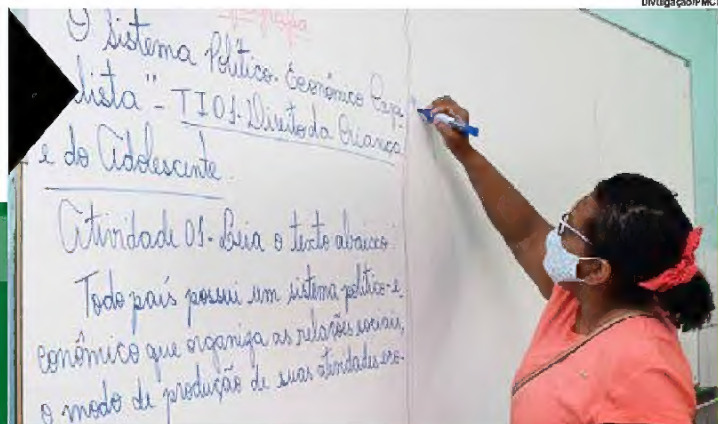 Divulgação/PMC
Geografia
O Sistema Político-Econômico Capi-
lista" - TI01-Direito da Criança
e do Adolescente.
Atividade 01 - Leia o texto abaixo:
Todo país possui um sistema político-e
conômico que organiza as relações sociais,
o modo de produção de suas atividades eco-